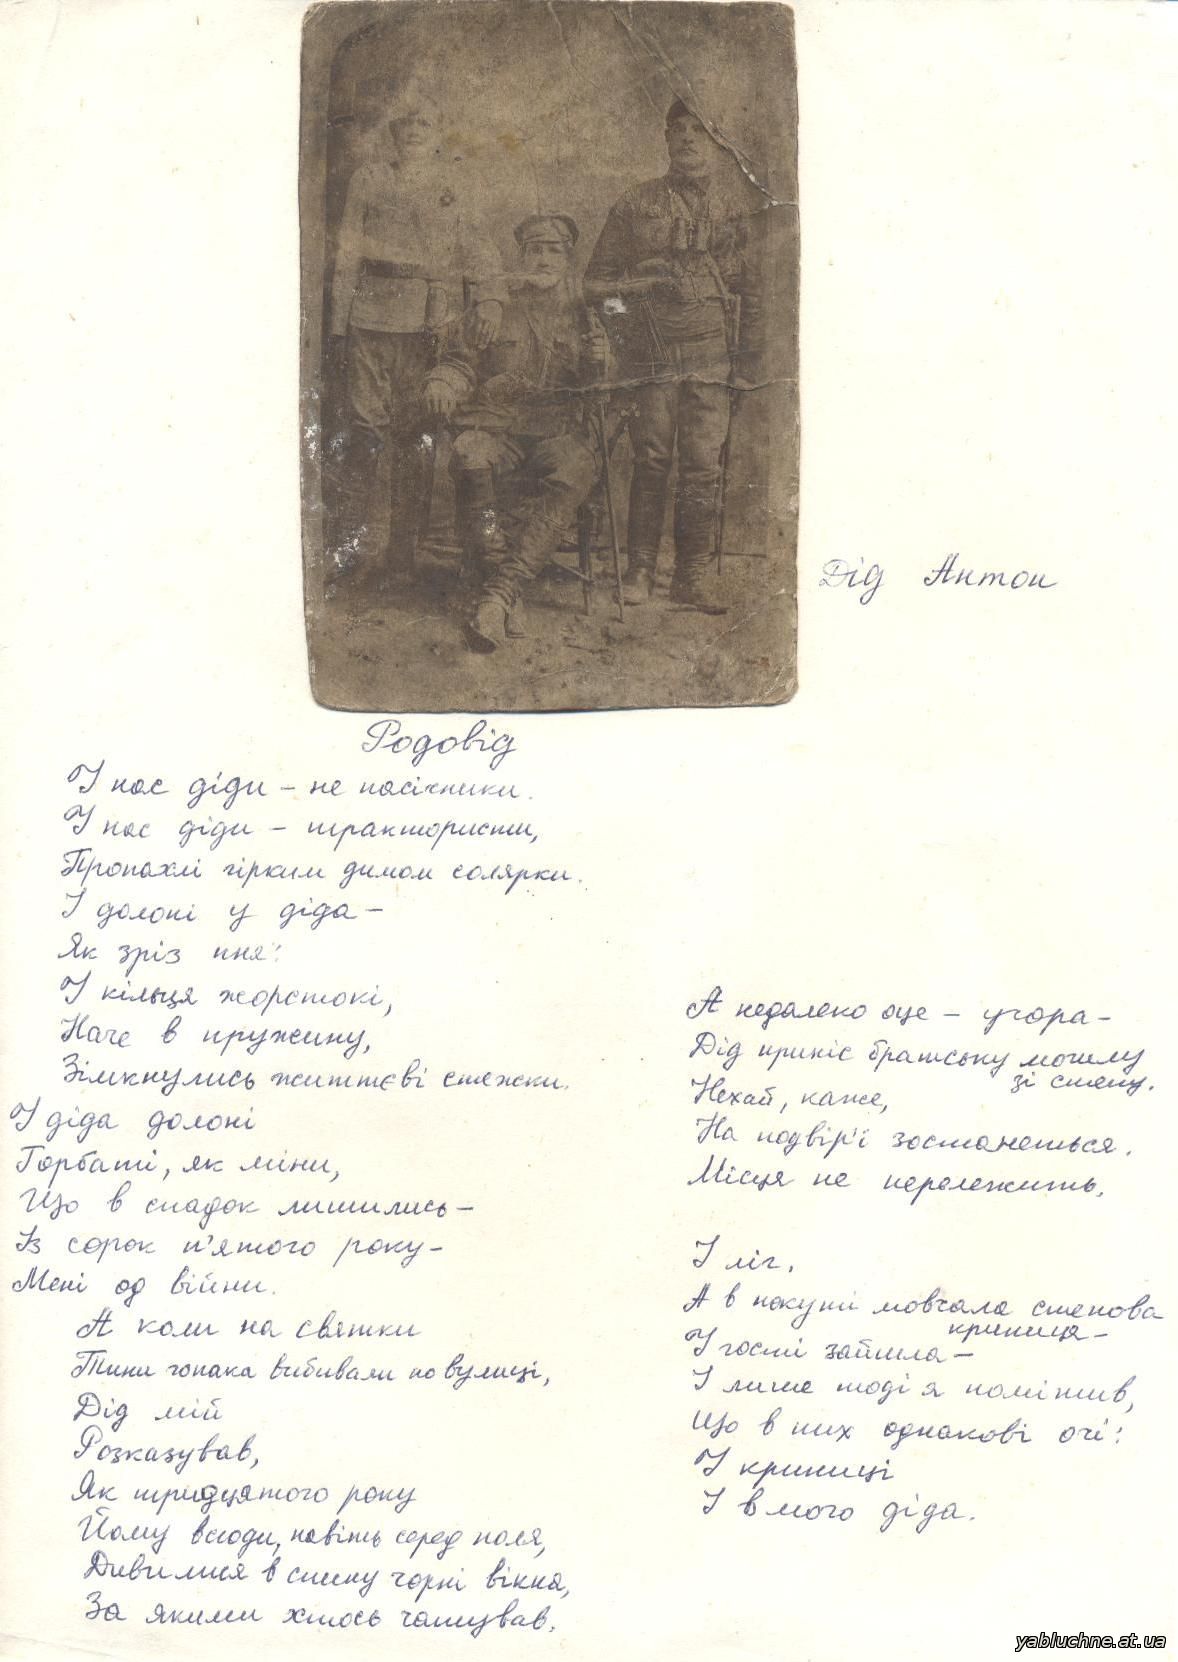 Дід Антон
Родовід
У нас діди – не пасічники.
У нас діди – трактористи,
Пропахлі гірким димом солярки.
І долоні у діда –
Як зріз пня:
У кільця жорстокі,
Наче в пружину,
Зімкнулись життєві стежки.
У діда долоні
Горбаті, як міни,
Що в спадок лишились –
Із сорок п'ятого року –
Мені од війни.
А коли на святки
Тини гопака вибивали по вулиці,
Дід мій
Розказував,
Як тридцятого року
Йому всюди, навіть серед поля,
Дивилися в спину чорні вікна,
За якими хтось чатував.
А недалеко оце – учора –
Дід приніс братську могилу
зі степу.
Нехай, каже,
На подвір'ї зостанеться.
Місця не перележить.
І ліг.
А в покуті мовчала степова
криниця –
У гості зайшла –
І лише тоді я помітив,
Що в них однакові очі:
У криниці
І в мого діда.
yabluchne.at.ua